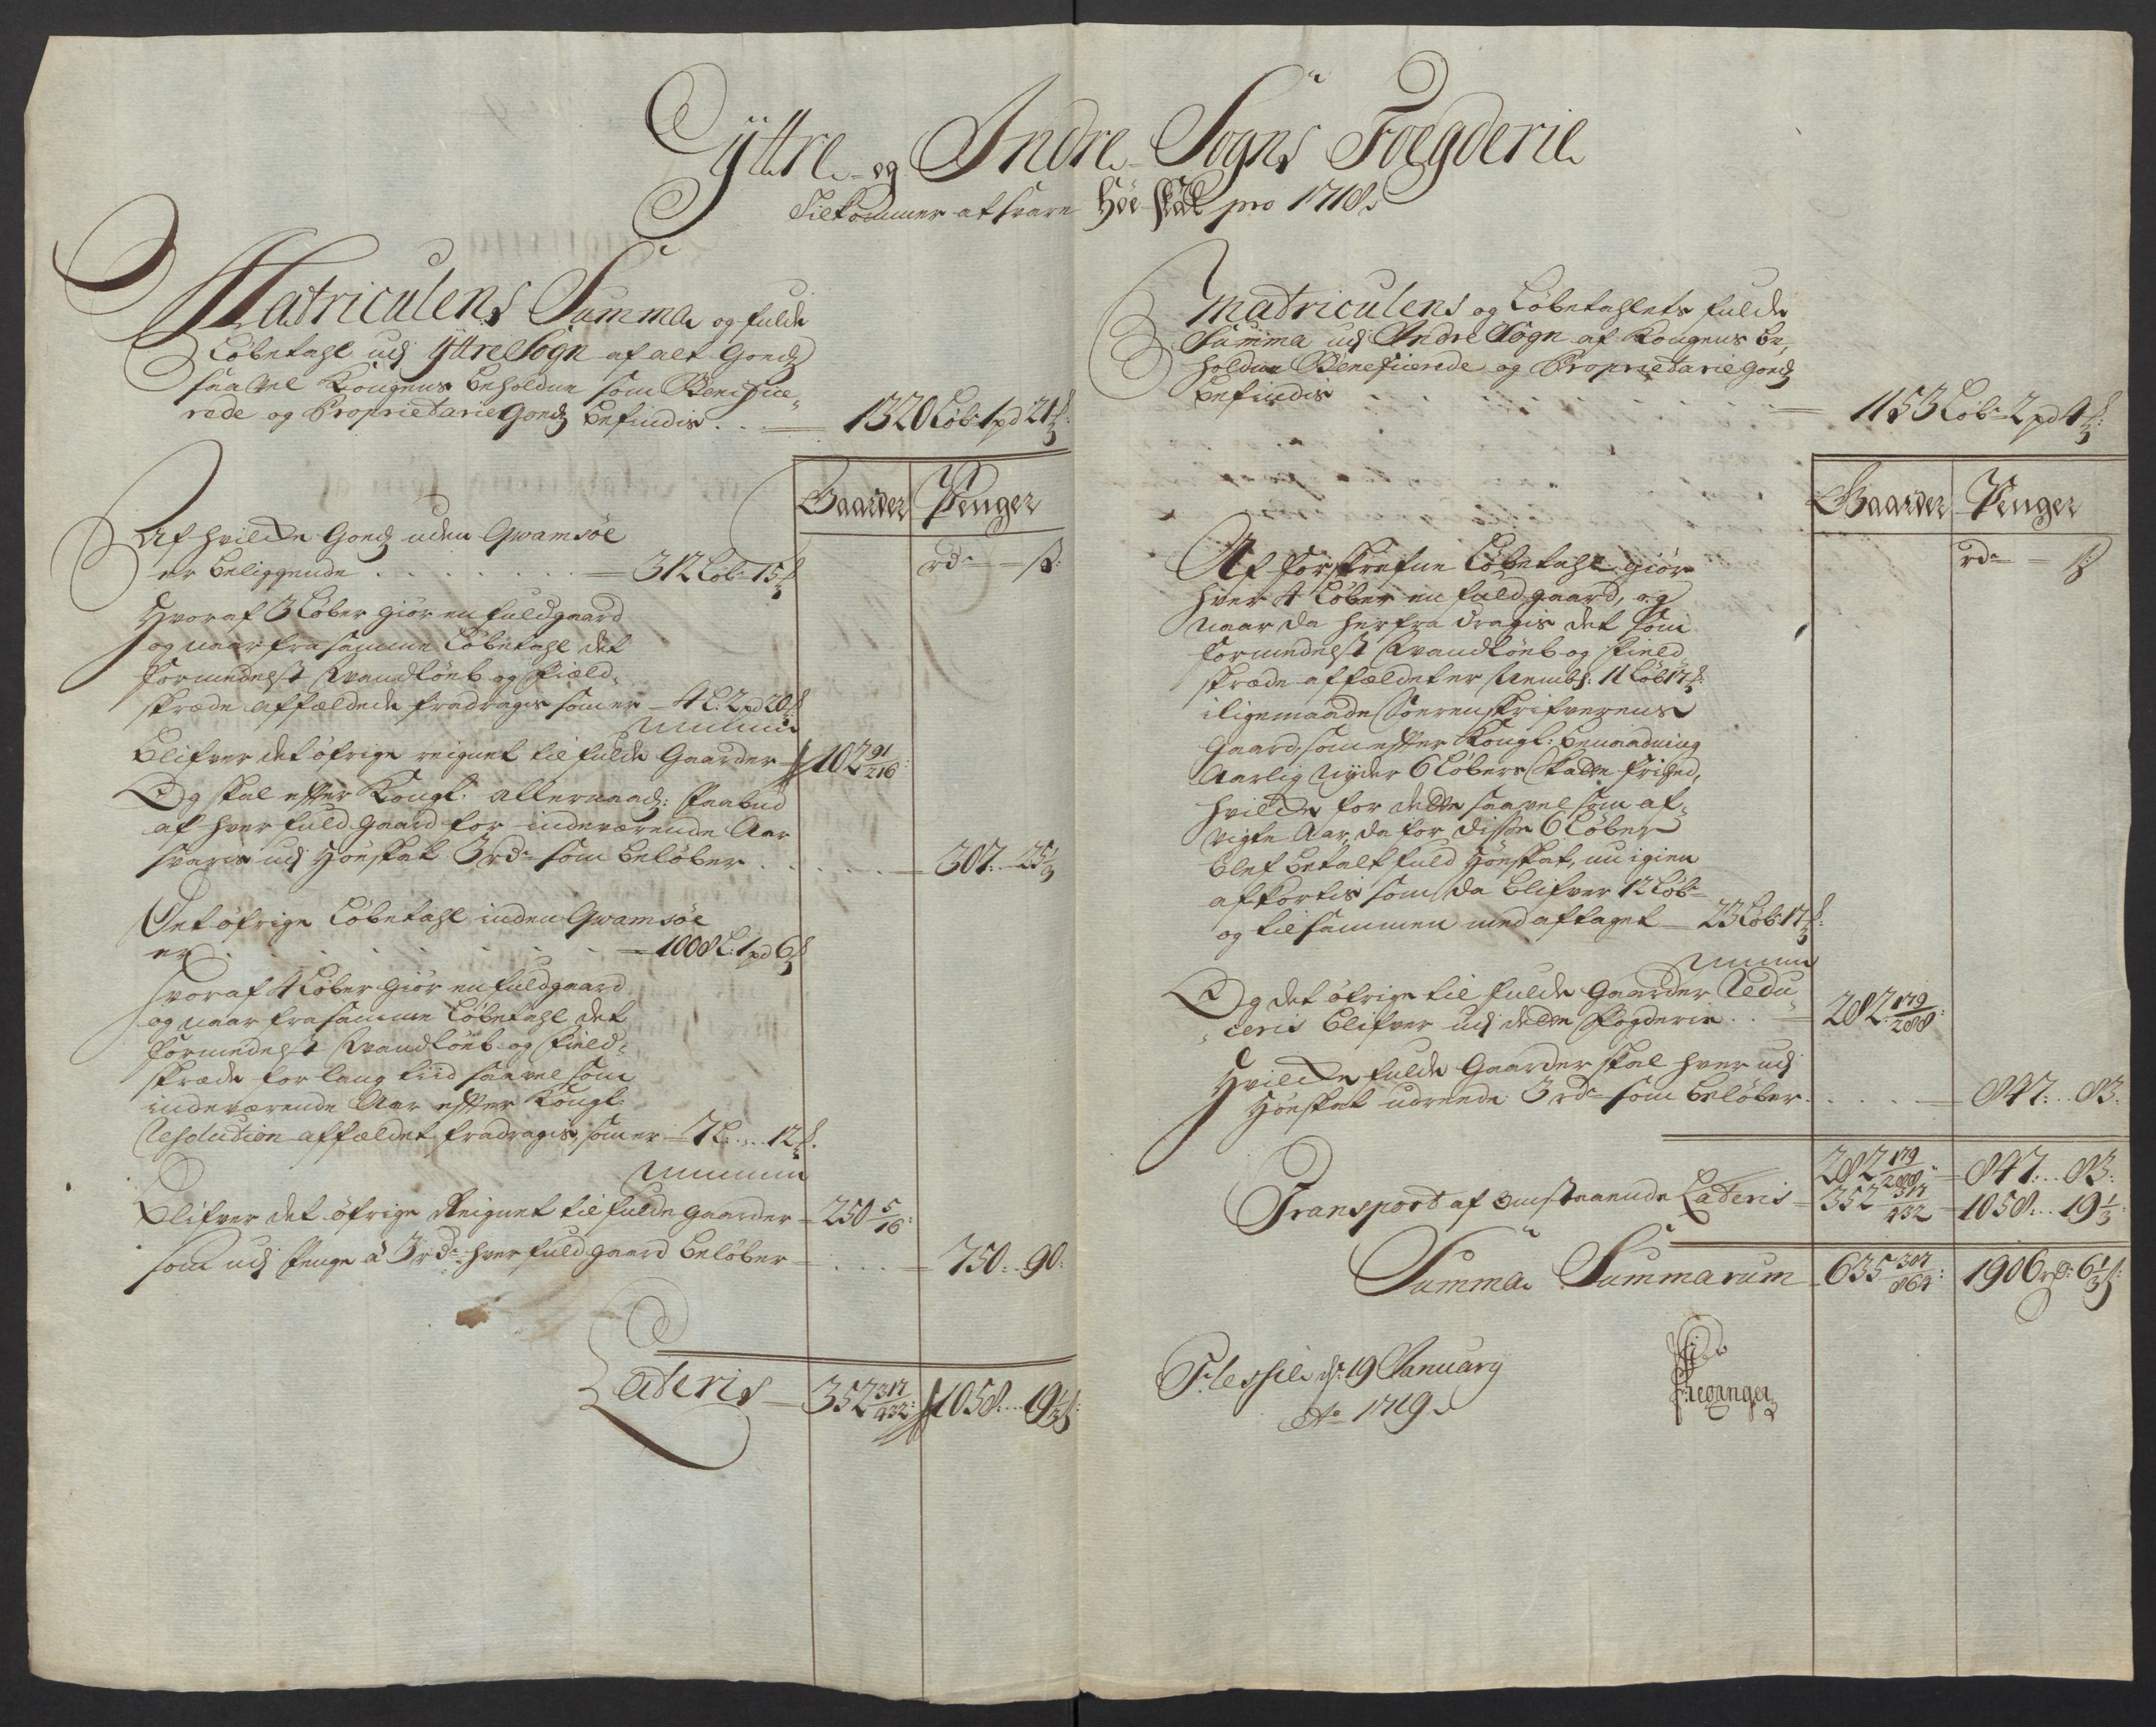 Yttre og Indre Sogns Foegderie
Tilkommer at svare Høe Skat pro 1718
Matriculens Summa og fulde
Løbetahl udj Yttre Sogn af alt Goedz
saavel Kongens beholdne som Benifice-
rede og Proprietarie Goedz befindis . . . 1320 Løb: 1 pd 21 ℔:
Gaarder Penger
Af hvilcke Goedz uden Qwamsøe
er beliggende . . . . . 312 Løb: 15 ℔
rdr — ß:
Hvoraf 3 Løber giør en fuldgaard
og naar fra samme Løbetahl det
formedelst Wandløeb og Field-
skrede affældede fradragis som er — 4 L: 2 pd 20 ℔
Blifver det øfrige reignet til fulde Gaarder 102 91/216:
Og skal effter Kongl: allernaad: Paabud
af hver fuld gaard for indeværende Aar
svaris udj Høeskat 3 rdr som beløber . . . 307: 25 1/3
Det øfrige Løbetahl inden Qwamsøe
er . . . . . . 1008 L: 1 pd 6 ℔
Hvoraf 4 Løber giør en fuldgaard
og naar fra samme Løbetahl det
formedelst Wandløeb og Field-
skrede for lang tiid saavel som
indeværende Aar effter Kongl:
Resolution affældet fradragis, som er — 7 L: . . 12 ℔.
Blifver det øfrige Reignet til fulde gaarder 250 5/16:
som udj Penge à 3 rdr: hver fuld gaard beløber . . . 750: 90:
Lateris 352 317/432: 1058: 19 1/3 ß:
Matriculens og Løbetahlets fulde
Summa udj Indre Sogn af Kongens be-
holdne Beneficerede og Proprietarie Goedz
befindis . . . 1153 Løb: 2 pd 4 ℔:
Gaarder Penger
rdr — ß:
Af forskrefne Løbetahl giør
hver 4 Løber en fuld gaard, og
naar da herfra dragis det som
formedelst Wandløeb og Field
skrede affældet er Nembl: 11 Løb 17 ℔:
iligemaade Sorenskrifverens
Gaard, som effter Kongl: benaadning
Aarlig nyder 6 Løbers Skatte frihed,
hvilcke for dette saavel som af-
vigte Aar, da for disse 6 Løber
blef betalt fuld Høeskat, nu igien
affkortis som da blifver 12 Løb:
og tilsammen med aftaget — 23 Løb: 17 ℔:
Og det øfrige til fulde Gaarder Redu
ceris blifver udj dette Fogderie . . 282: 179/288:
Hvilcke fulde Gaarder skal hver udj
Høeskat udreede 3 rdr som beløber . . . 847: 83:
282 179/288: 847: 83:
Transport af omstaaende Lateris 352 317/432 1058: 19 1/3
Summa Summarum 635 307/864: 1906 rdr: 6 1/3 ß:
Flessie d: 19 January
Ao 1719.